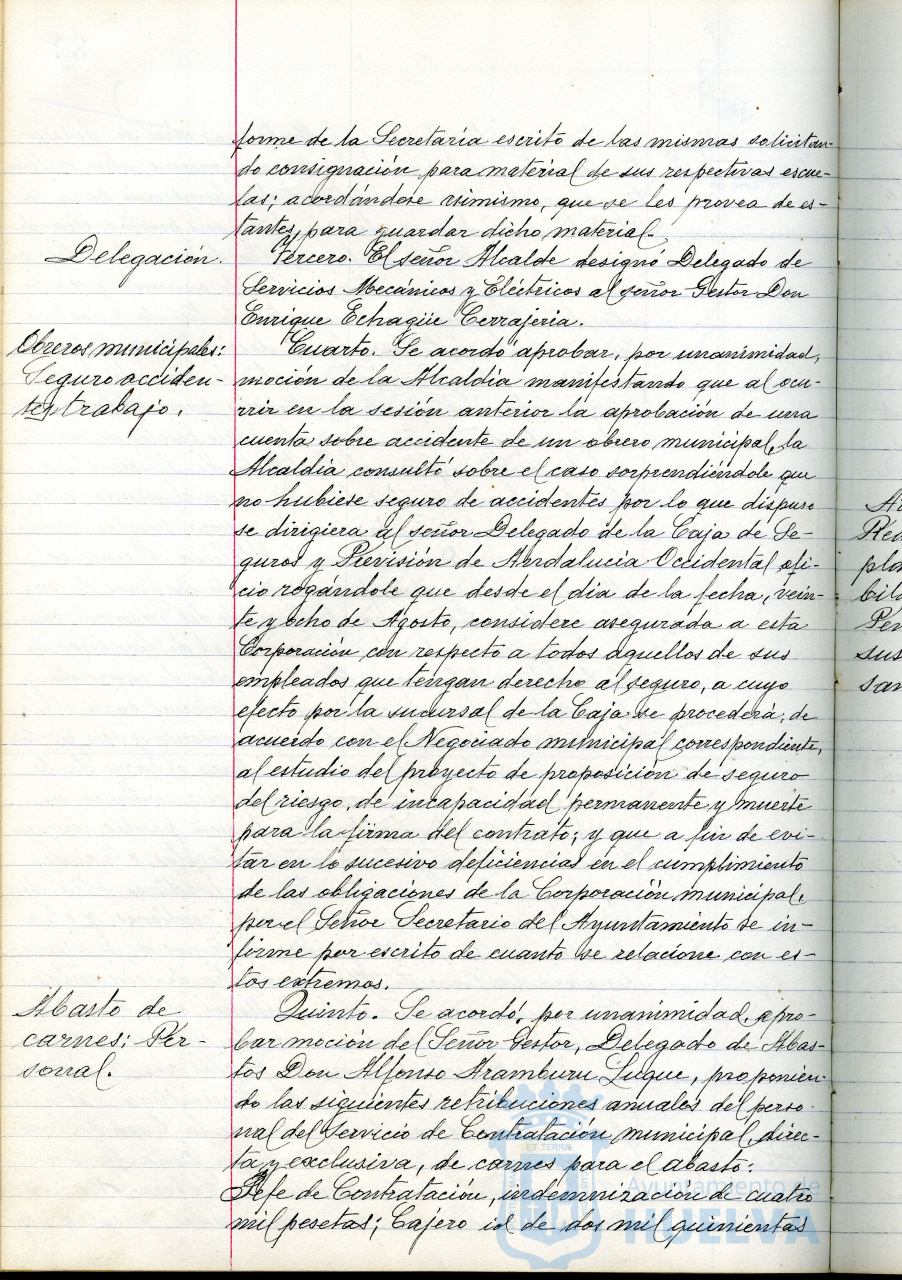 forme de la Secretaría escrito de las mismas solicitan-
do consignación para material de sus respectivas escue-
las; acordándose asimismo, que se les provea de es-
tantes, para guardar dicho material.
Delegación.
Tercero. El señor Alcalde designó Delegado de
Servicios Mecánicos y Eléctricos al señor Gestor Don
Enrique Echagüe Cerrajeria.
Obreros municipales:
Seguro acciden-
tes trabajo.
Cuarto. Se acordó aprobar, por unanimidad,
moción de la Alcaldía manifestando que al ocu-
rrir en la sesión anterior la aprobación de una
cuenta sobre accidente de un obrero municipal, la
Alcaldía consultó sobre el caso sorprendiéndole que
no hubiese seguro de accidentes por lo que dispuso
se dirigiera al señor Delegado de la Caja de Se-
guros y Previsión de Andalucia Occidental ofi-
cio rogándole que desde el día de la fecha, vein-
te y ocho de Agosto, considere asegurada a esta
Corporación con respecto a todos aquellos de sus
empleados que tengan derecho al seguro, a cuyo
efecto por la sucursal de la Caja se procederá, de
acuerdo con el Negociado municipal correspondiente,
al estudio del proyecto de proposición de seguro
del riesgo, de incapacidad permanente y muerte
para la firma del contrato; y que a fin de evi-
tar en lo sucesivo deficiencias en el cumplimiento
de las obligaciones de la Corporación municipal,
por el Señor Secretario del Ayuntamiento se in-
forme por escrito de cuanto se relacione con es-
tos extremos.
Abasto de
carnes: Per-
sonal.
Quinto. Se acordó, por unanimidad, apro-
bar moción del Señor Gestor, Delegado de Abas-
tos Don Alfonso Aramburu Luque, proponien-
do las siguientes retribuciones anuales del perso-
nal del Servicio de Contratación municipal, direc-
ta y exclusiva, de carnes para el abasto:
Jefe de Contratación, indemnización de cuatro
mil pesetas; Cajero id de dos mil quinientas
Ayuntamiento de
HUELVA